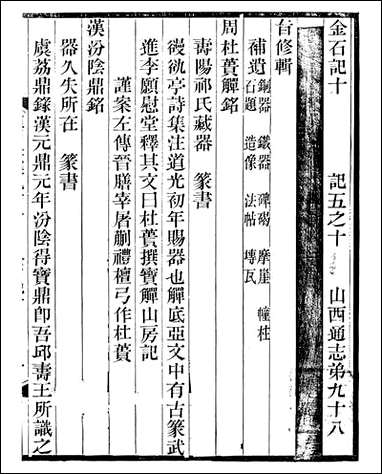 金石記十 記五之十 山西通志弟九十八
旨修輯
補遺 銅器 鐵器 碑碣 摩崖 幢柱
石題 造像 法帖 塼瓦
周杜蕢觶銘
壽陽祁氏藏器 篆書
䜱䜪亭詩集注道光初年賜器也觶底亞文中有古篆武
進李願慰堂釋其文曰杜蕢撰寶觶山房記
謹案左傳晉膳宰屠蒯禮檀弓作杜蕢
漢汾陰鼎銘
器久失所在 篆書
虞荔鼎錄漢元鼎元年汾陰得寶鼎卽吾邱壽王所識之